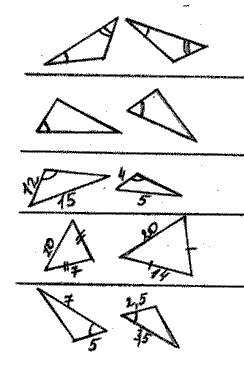 12 15 4 5
10 7 20 14
7 5 2,5 3,5